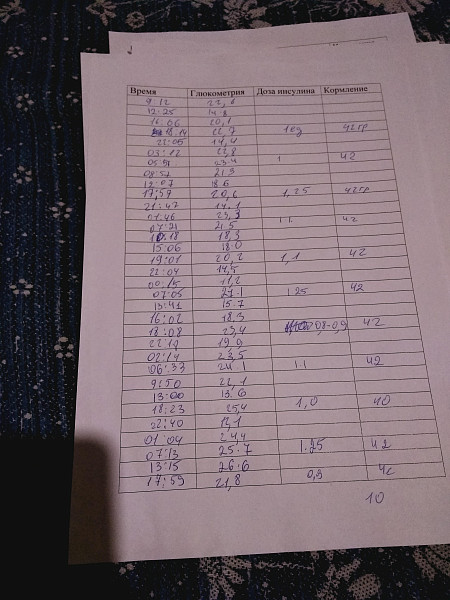 Время Глюкометрия Доза инсулина Кормление
9:12 22,1
12:25
16:06 20,1
18:14 22,7 1ед 42гр
22:05 14,4
03:12 22,8
05:51 23.4 1 42
08:57 21.3
12:07 18.6
17:59 20,6 1,25 42гр
21:47 14.1
01:46 23,3
07:21 21.5 1.1. 42
18,3
15:06 18.0
19:01 20,2 1,1 42
22:04 14,5
00:15 11,2
07:05 27.1 1.25 42
13:41 15.7
16:02 18.3
18:08 23,4 0,8-0,9 42
22:19 19.9
02:14 23,5
06:33 24.1 1.1 42
9:50 22,1
13:00 13.6
18:23 25,4 1,0 40
22:40
01:04 24.4
07:13 25.7 1.25 42
13:15 26.6
17:59 21,8 0,9
10